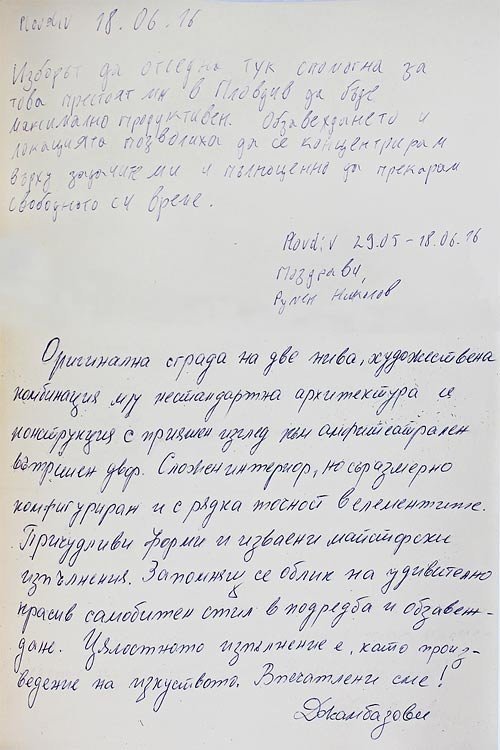 Plovdiv 18.06.16
Изборът да отседна тук спомогна за
това престоят ми в Пловдив да бъде
максимално продуктивен. Обзавеждането и
локацията позволиха да се концентрирам
върху задачите ми и пълноценно да прекарам
свободното си време.
Plovdiv 29.05-18.06.16
Поздрави,
Румен Николов
Оригинална сграда на две нива, художествена
комбинация м/у нестандартна архитектура и
конструкция с приятен изглед към амфитеатрален
вътрешен двор. Сложен интериор, но съразмерно
конфигуриран и с рядка точност в елементите.
Причудливи форми и изваени майсторски
изпълнения. Запомнящ се облик на удивително
красив самобитен стил в подредба и обзавеж-
дане. Цялостното изпълнение е, като произ-
ведение на изкуството. Впечатлени сме!
Джамбазови